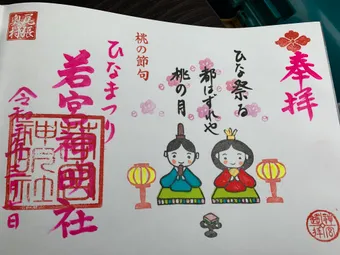 奉拝
ひな祭る
都はずれや
桃の月
桃の節句
ひなまつり
若宮神明社
令和
日
尾張
奥村